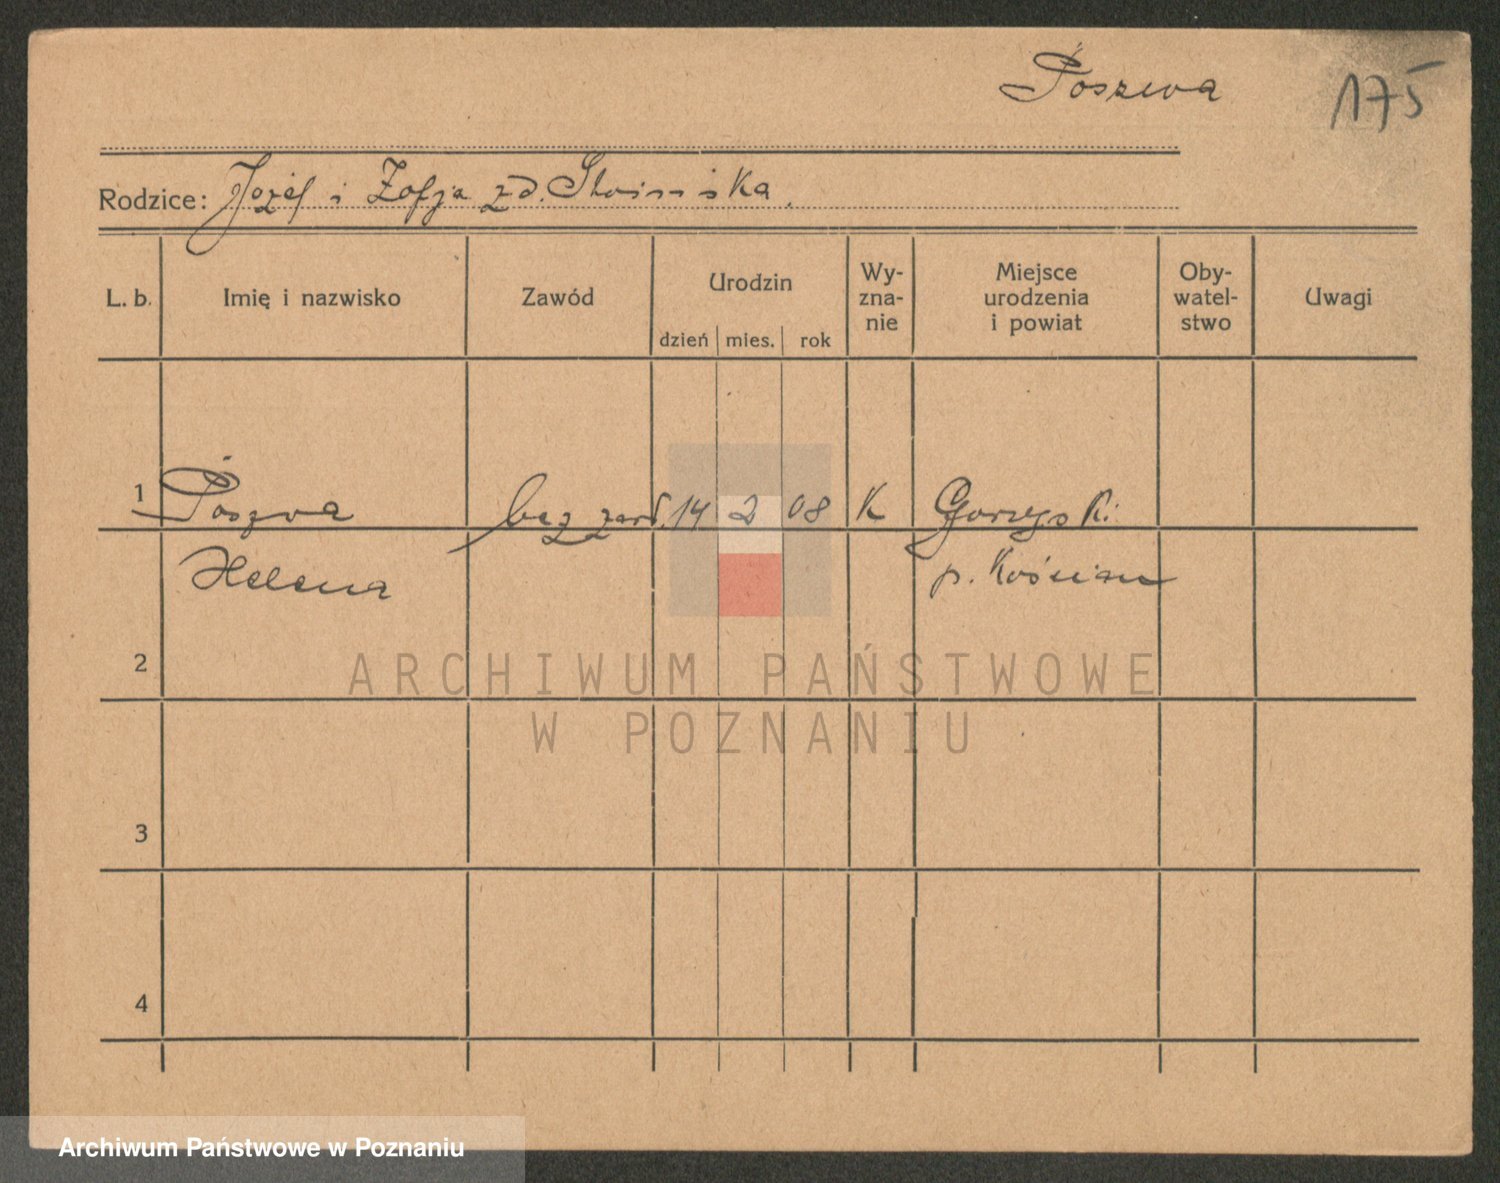 Poszwa
175
Rodzice: Józef i Zofja zd. Słoińska.
L. b.
Imię i nazwisko
Zawód
Urodzin
dzień mies. rok
Wy-
zna-
nie
Miejsce
urodzenia
i powiat
Oby-
watel-
stwo
Uwagi
1 Poszwa bez zawd. 14 2 08 K Gorzyski
Helena p. Kościan
2
3
4
ARCHIWUM PAŃSTWOWE
W POZNANIU
Archiwum Państwowe w Poznaniu